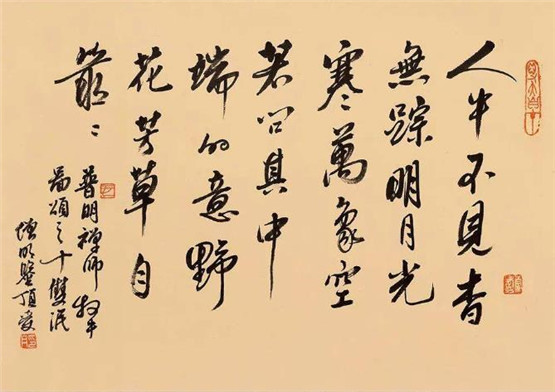 人牛不見杳
無踪明月光
寒萬象空
若问其中
端的意野
花芳草自
叢〻
普明禪師牧牛
啚頌之十雙泯